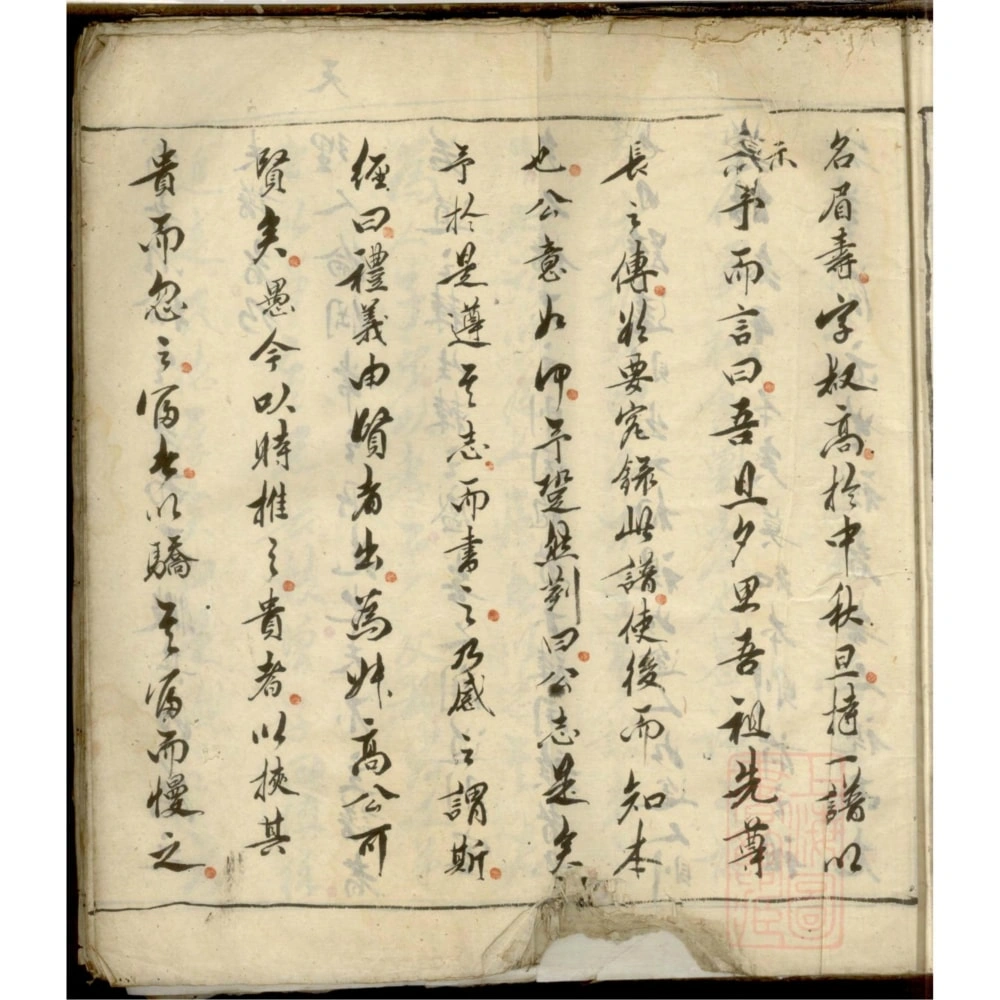 名眉壽字叔高於中秋旦持一譜以
示予而言曰吾旦夕思吾祖先尊
長之傳於要宛錄此譜使後而知本
也公意如何予莞然剳曰公志是矣
予於是遵其志而書之乃感之謂斯
經曰禮義由賢者出為叔高公可
賢矣愚今以時推之貴者以挾其
貴而忽之富者以驕其富而慢之